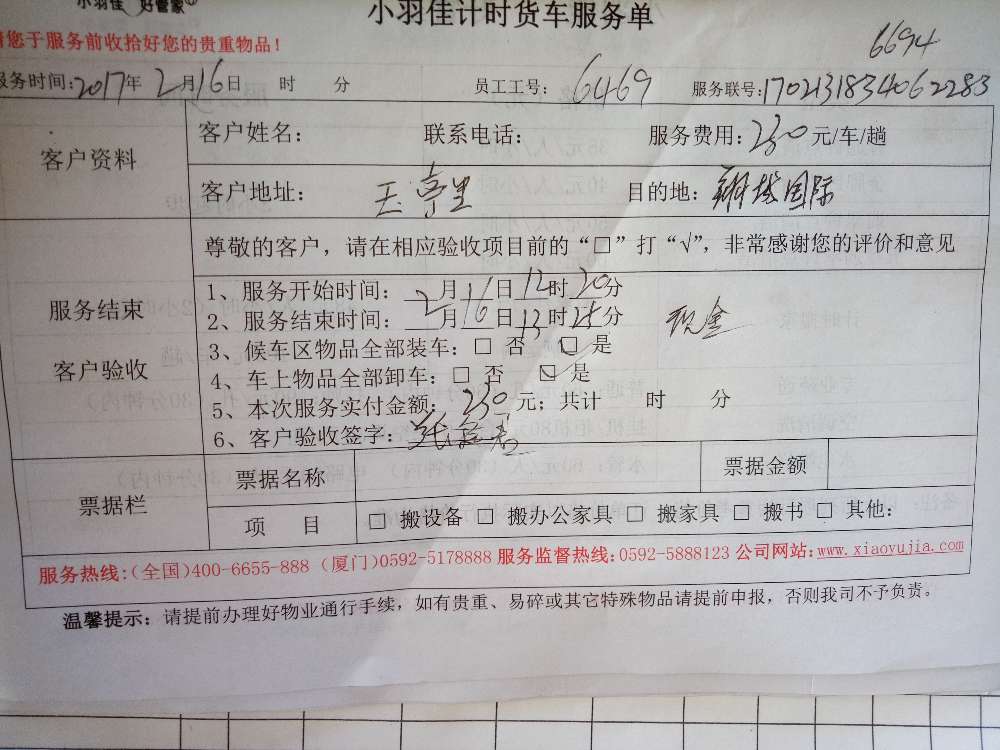 小羽佳 好管家
小羽佳计时货车服务单
请您于服务前收拾好您的贵重物品!
6694
服务时间:2017年 2月16日 时 分 员工工号: 6469 服务联号:1702131834062283
客户资料
客户姓名: 联系电话: 服务费用:230元/车/趟
客户地址: 目的地: 国际
尊敬的客户，请在相应验收项目前的“□”打“√”，非常感谢您的评价和意见
服务结束
客户验收
1、服务开始时间: 2月16日12时20分
2、服务结束时间: 2月16日13时25分 现金
3、候车区物品全部装车: □ 否 ☑ 是
4、车上物品全部卸车: □ 否 ☑ 是
5、本次服务实付金额: 230元; 共计 时 分
6、客户验收签字:
票据栏
票据名称 票据金额
项 目 □ 搬设备 □ 搬办公家具 □ 搬家具 □ 搬书 □ 其他:
服务热线:(全国)400-6655-888 (厦门)0592-5178888 服务监督热线:0592-5888123 公司网站:www.xiaoyujia.com
温馨提示: 请提前办理好物业通行手续，如有贵重、易碎或其它特殊物品请提前申报，否则我司不予负责。